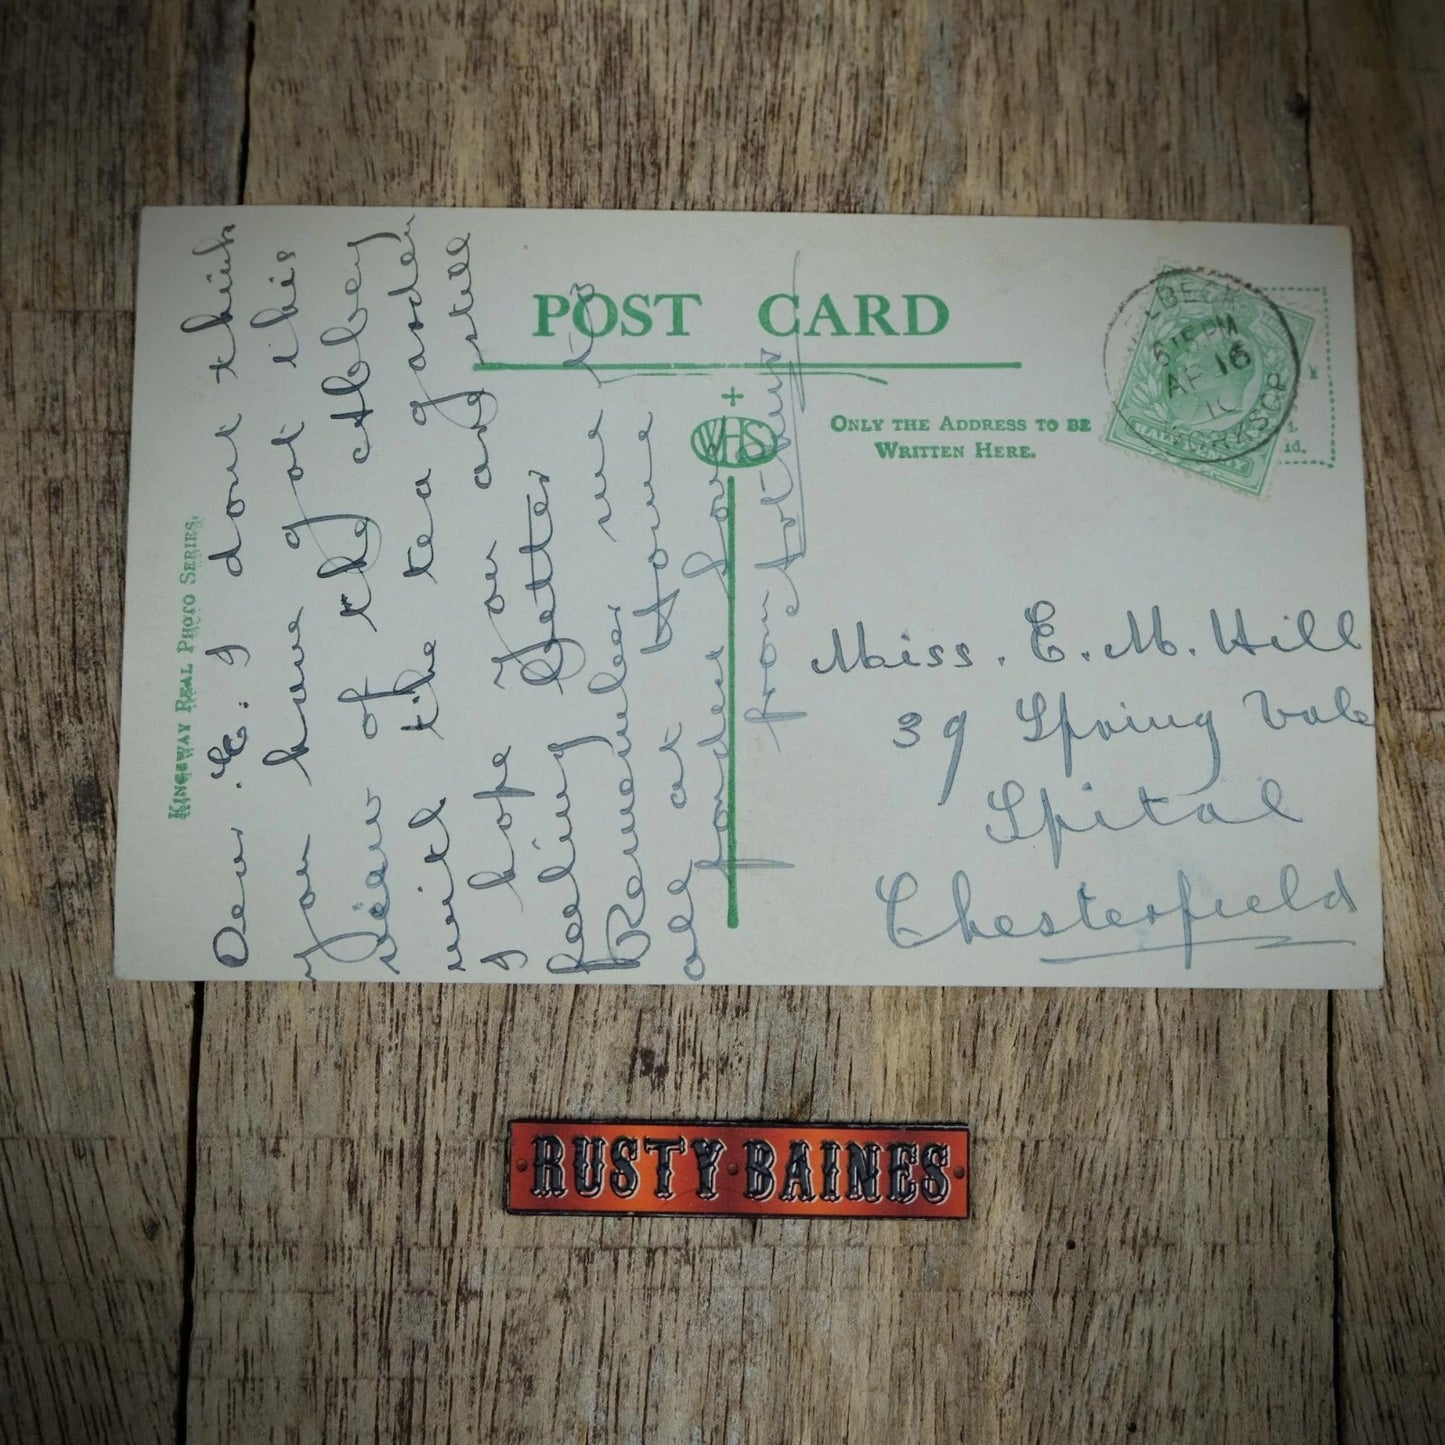 KINGSWAY REAL PHOTO SERIES.
POST CARD
WHS
ONLY THE ADDRESS TO BE
WRITTEN HERE.
6 15 PM
AP 16
10
WORKSOP
Dear E. I dont think
you have got this
view of the Abbey
with the tea garden
I hope you are still
feeling better
Remember me to
all at Home
fondest love
from
Miss. E. M. Hill
39 Spring Vale
Spital
Chesterfield
RUSTY BAINES